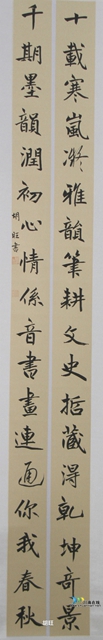 十載寒嵐凝雅韻筆耕文史拓藏得乾坤奇景
千期墨韻潤初心情係音書畫連通你我春秋
胡旺書
胡旺